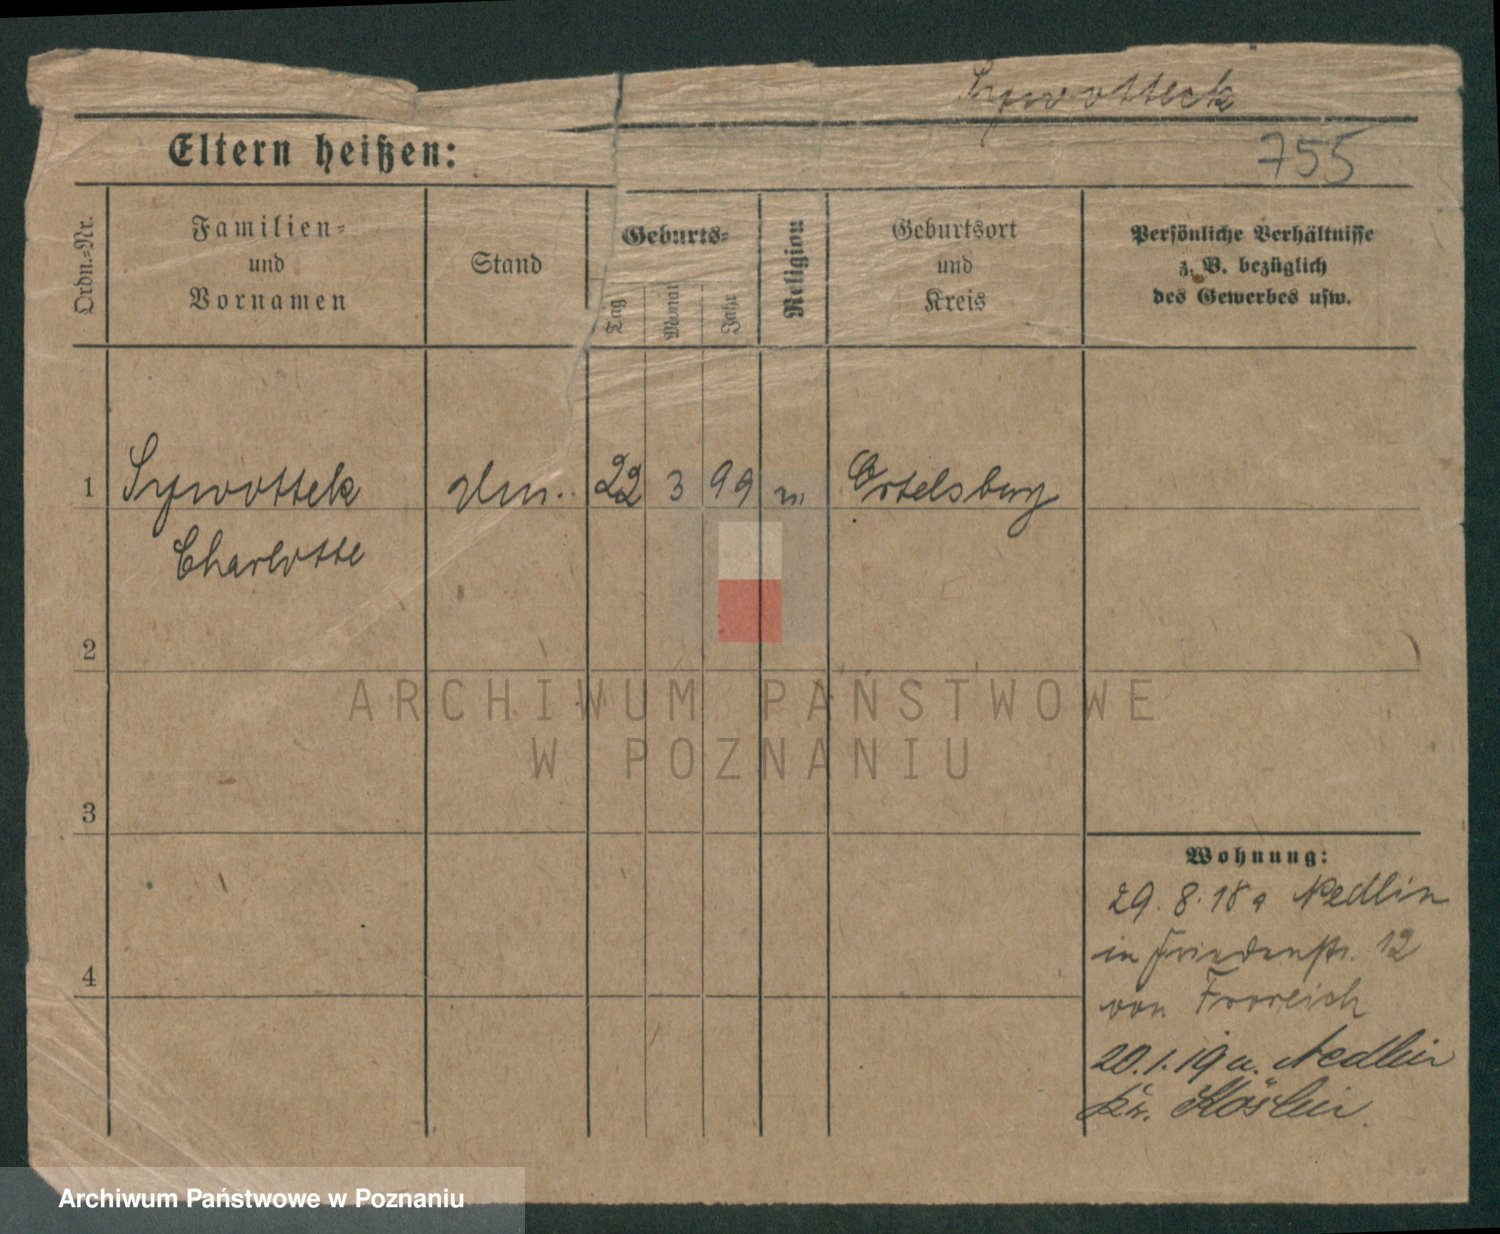 Sywotteck
755
Eltern heißen:
Ordn.-Nr.
Familien=
und
Vornamen
Stand
Geburts=
Tag
Monat
Jahr
Religion
Geburtsort
und
Kreis
Persönliche Verhältnisse
z. B. bezüglich
des Gewerbes usw.
1 Sywottek 22 3 99 Ortelsburg
Charlotte
2
3
4
Wohnung:
29. 8. 18 a Nedlin
in Friedenstr. 12
von Froreich
20.1.19 a. Nedlin
Kr. Köslin
ARCHIWUM PAŃSTWOWE
W POZNANIU
Archiwum Państwowe w Poznaniu